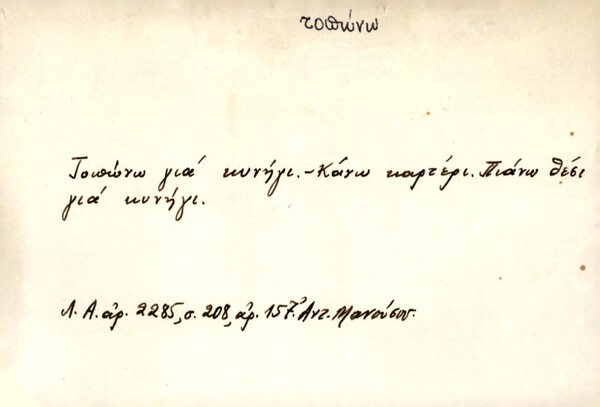 τοπώνω
Τοπώνω γιά κυνήγι. - Κάνω καρτέρι. Πιάνω θέσι
γιά κυνήγι.
Λ. Α. ἀρ. 2285, σ. 208, ἀρ. 157. Ἀντ. Μανούσου.